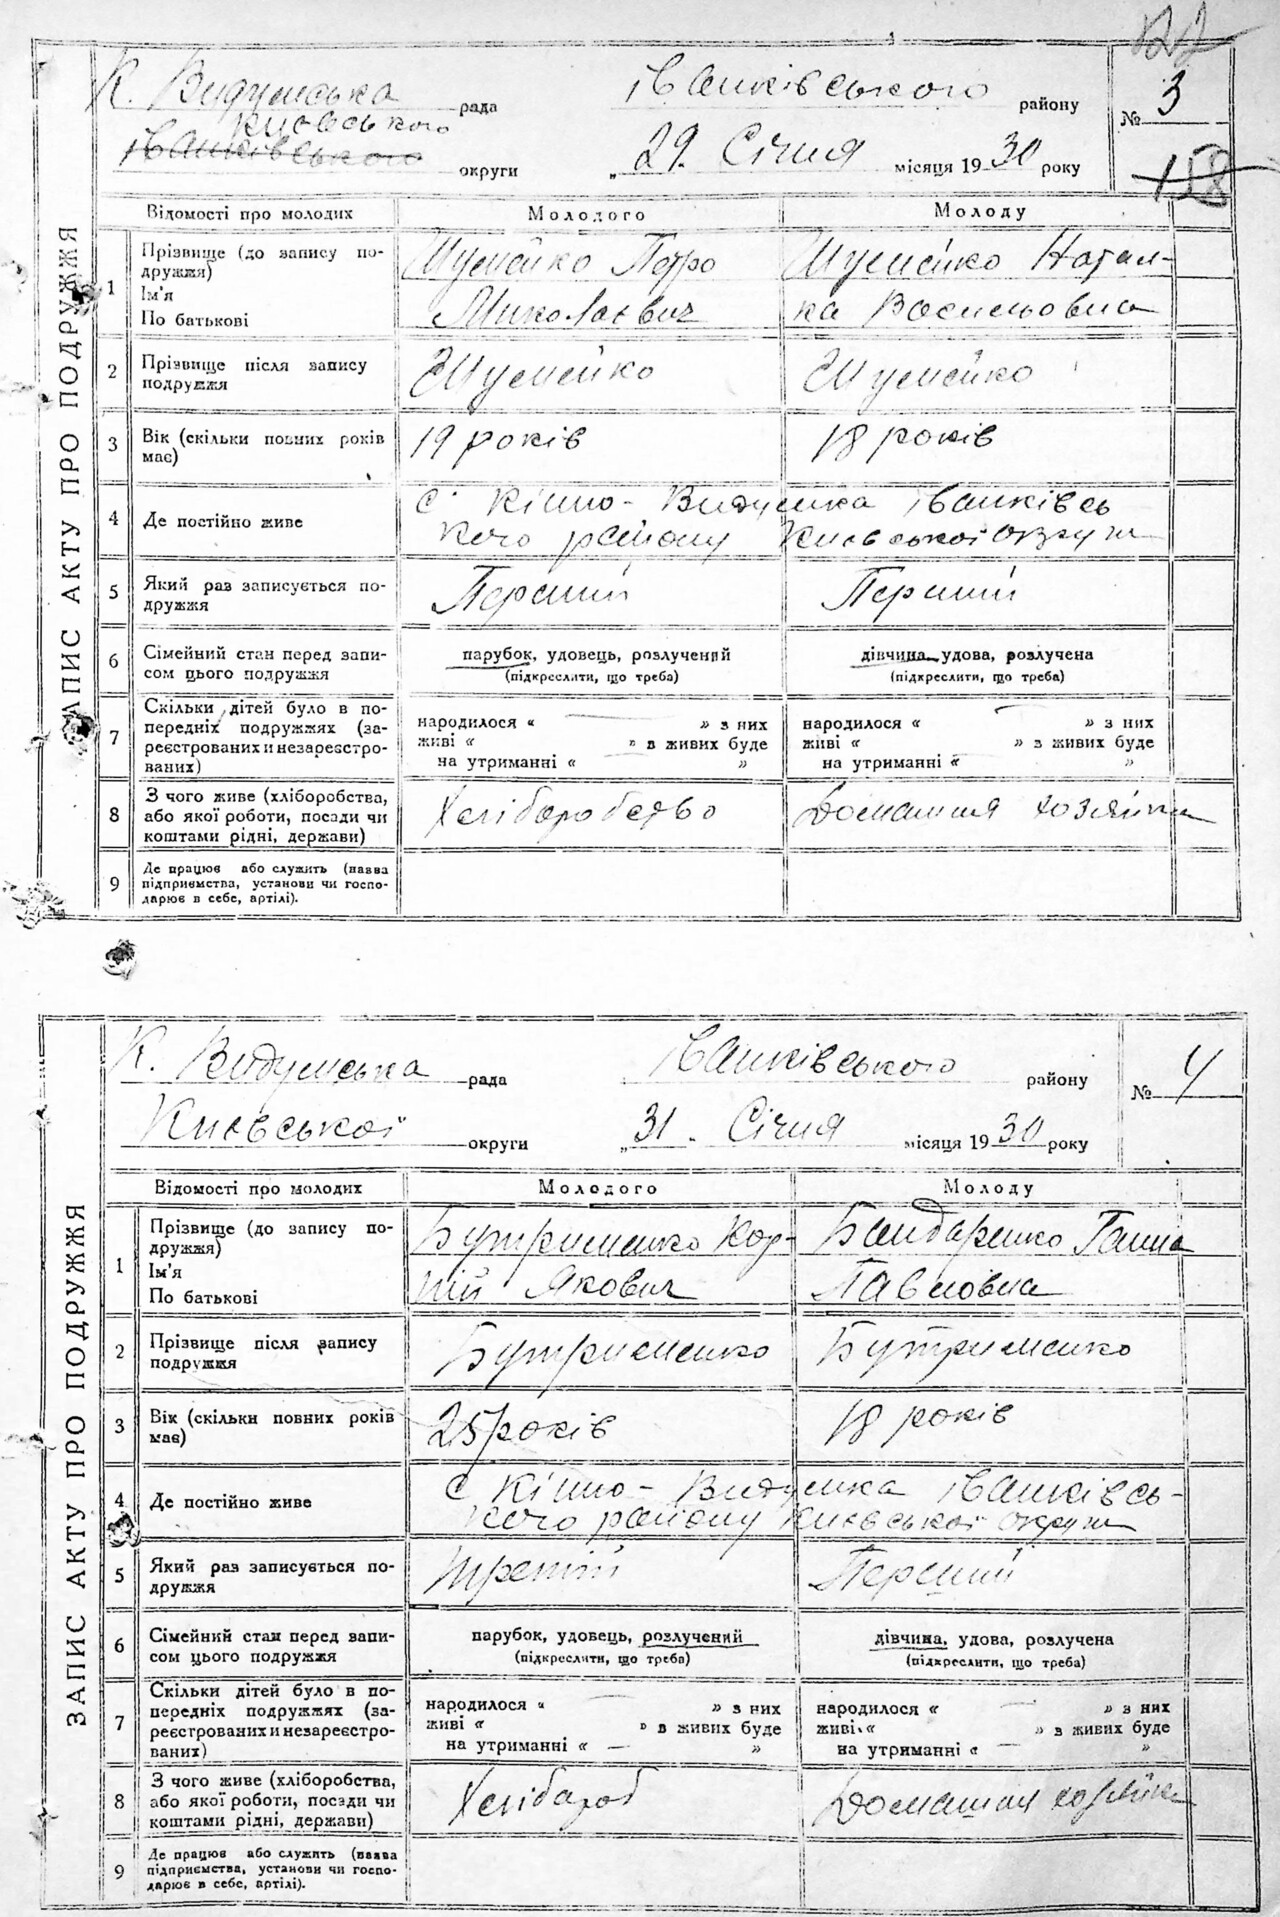 122
К. Видумська рада Іванківського району № 3
Києвського
Іванківського округи „29. Січня місяця 1930 року
158
ЗАПИС АКТУ ПРО ПОДРУЖЖЯ
Відомості про молодих Молодого Молоду
1 Прізвище (до запису по- Шумейко Петро Шумейко Натал-
дружжя)
Ім'я Миколаєвич ка Васильовна
По батькові
2 Прізвище після запису Шумейко Шумейко
подружжя
3 Вік (скільки повних років 19 років 18 років
має)
4 Де постійно живе с. Кінно-Видумка Іванківсь
кого району Києвської округи
5 Який раз записується по- Перший Перший
дружжя
6 Сімейний стан перед запи- парубок, удовець, розлучений дівчина, удова, розлучена
сом цього подружжя (підкреслити, що треба) (підкреслити, що треба)
7 Скільки дітей було в по-
передніх подружжях (за- народилося “ — ” з них народилося “ ” з них
реєстрованих и незареєстро- живі “ ” в живих буде живі “ ” з живих буде
ваних) на утриманні “ ” на утриманні “ ”
8 З чого живе (хліборобства, Хліборобство Домашня хозяйка
або якої роботи, посади чи
коштами рідні, держави)
9 Де працює або служить (назва
підприємства, установи чи госпо-
дарює в себе, артілі).
К. Видумська рада Іванківського району № 4
Києвської округи „31. Січня місяця 1930 року
ЗАПИС АКТУ ПРО ПОДРУЖЖЯ
Відомості про молодих Молодого Молоду
1 Прізвище (до запису по- Бутрименко Кор- Бандаренко Ганна
дружжя)
Ім'я ній Якович Павловна
По батькові
2 Прізвище після запису Бутрименко Бутрименко
подружжя
3 Вік (скільки повних років 25 років 18 років
має)
4 Де постійно живе с Кінно-Видумка Іванківсь-
кого району Києвської округи
5 Який раз записується по- Третій Перший
дружжя
6 Сімейний стан перед запи- парубок, удовець, розлучений дівчина, удова, розлучена
сом цього подружжя (підкреслити, що треба) (підкреслити, що треба)
7 Скільки дітей було в по-
передніх подружжях (за- народилося “ — ” з них народилося “ — ” з них
реєстрованих и незареєстро- живі “ ” в живих буде живі “ ” з живих буде
ваних) на утриманні “ — ” на утриманні “ — ”
8 З чого живе (хліборобства, Хлібороб Домашня хозяйка
або якої роботи, посади чи
коштами рідні, держави)
9 Де працює або служить (назва
підприємства, установи чи госпо-
дарює в себе, артілі).